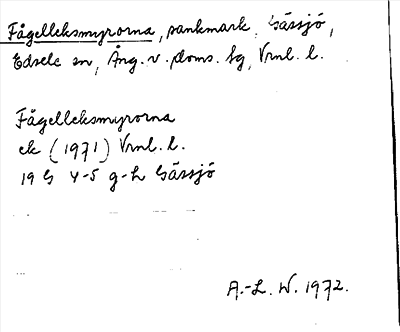 Fågelleksmyrorna, sankmark, Gässjö,
Edsele sn, Ång. v. doms. sg, Vrnl. l.
Fågelleksmyrorna
ek (1971) Vrnl. l.
19 G 4-5 g-h Gässjö
A.-L. W. 1972.